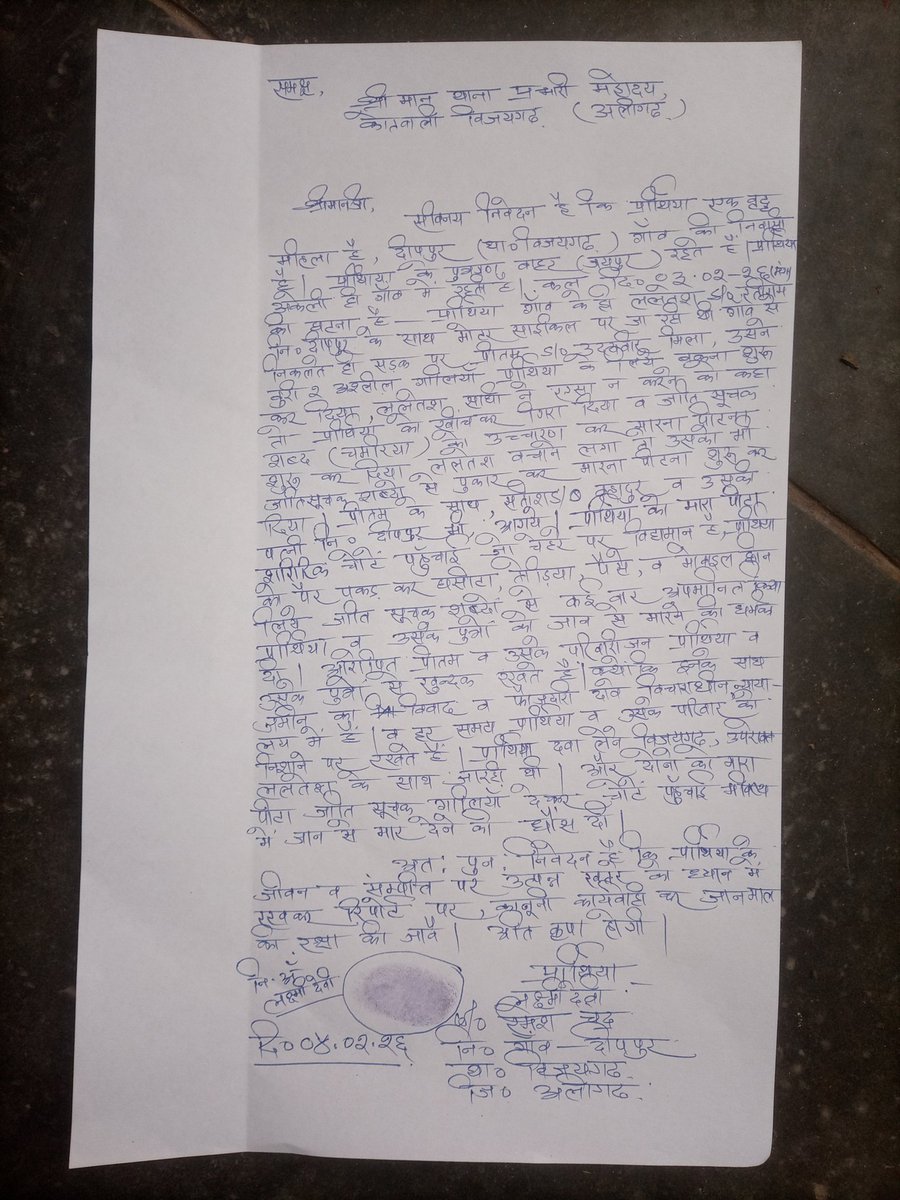 समक्ष,
श्री मान् थाना प्रभारी महोदय,
कोतवाली विजयगढ़ (अलीगढ़)
श्रीमानजी,
सविनय निवेदन है कि प्रार्थिया एक वृद्ध
महिला है, दीपपुर (था० विजयगढ़) गाँव की निवासी
है। प्रार्थिया के पुत्रगण बाहर (जयपुर) रहते है। प्रार्थिया
अकेली ही गाँव में रहती है। कल दि० ०३.०२-२६
की घटना है - प्रार्थिया गाँव के ही ललतेश S/o
नि० दीपपुर के साथ मोटर साईकिल पर जा रही थी गाँव से
निकलते ही सडक पर प्रीतम S/o उदलवीर मिला, उसने
बुरी २ अश्लील गालियाँ प्रार्थिया के लिये बकना शुरू
कर दिया, ललतेश साथी ने एसा न करने को कहा
तो प्रार्थिया को खींचकर गिरा दिया व जाति सूचक
शब्द (चमरिया) का उच्चारण कर मारना पीटना
शुरू कर दिया ललतेश बचाने लगा तो उसको भी
जातिसूचक शब्दों से पुकार कर मारना पीटना शुरू कर
दिया। प्रीतम के साथ, सतीश S/o व उसकी
पत्नी नि० दीपपुर भी, आगये। प्रार्थिया को मारा पीटा
शारीरिक चोटें पहुँचाई जो चेहरे पर विद्यमान है, प्रार्थिया
को पैर पकड कर घसीटा, पैसे, व मोबाइल छीन
लिये जाति सूचक शब्दों से कई बार अपमानित किया
प्रार्थिया व उसके पुत्रों को जान से मारने की धमकी
दी। आरोपित प्रीतम व उसके परिवारीजन प्रार्थिया व
उसके पुत्रों से खुन्दक रखते है। क्योंकि इनके साथ
जमीन का विवाद व फौजदारी दावे विचाराधीन न्याया-
लय में है। व हर समय प्रार्थिया व उसके परिवार को
निशाने पर रखते हैं। प्रार्थिया दवा लेने विजयगढ़, उपरोक्त
ललतेश के साथ आरही थी। और दोनों को मारा
पीटा जाति सूचक गालियाँ देकर चोटें पहुँचाई भविष्य
में जान से मार देने की धौंस दी।
अतः पुनः निवेदन है कि प्रार्थिया के
जीवन व सम्पत्ति पर उत्पन्न खतरे को ध्यान में
रखकर रिपोर्ट पर, कानूनी कार्यवाही कर जानमाल
की रक्षा की जावै। अति कृपा होगी।
प्रार्थिया
नि. अँ०
लक्ष्मी देवी
लक्ष्मी देवी
रमेश चन्द्र
दि० ०४.०२.२६
नि० गाँव - दीपपुर
था० विजयगढ़
जि० अलीगढ़